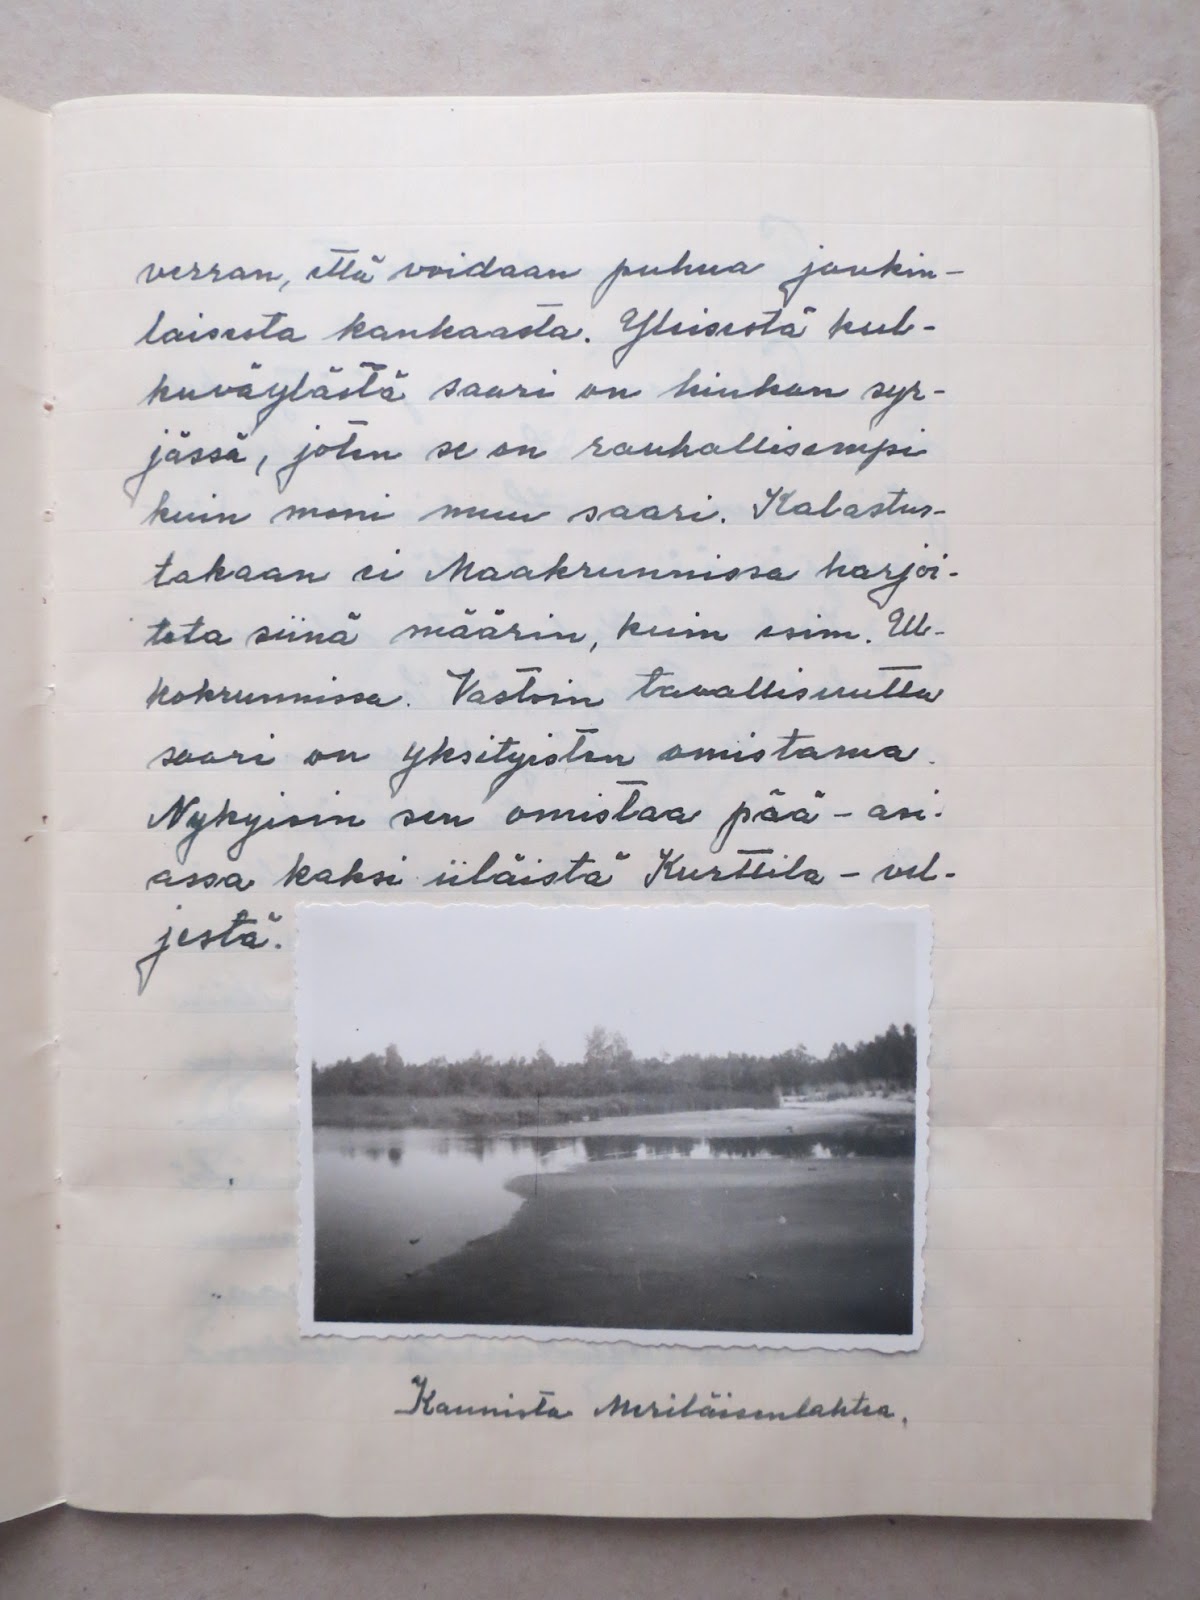 verran, että voidaan puhua jonkin-
laisesta kankaasta. Yleisestä kul-
kuväylästä saari on hiukan syr-
jässä, joten se on rauhallisempi
kuin moni muu saari. Kalastus-
takaan ei Maakrunnissa harjoi-
teta siinä määrin, kuin esim. Ul-
kokrunnissa. Vastoin tavallisuutta
saari on yksityisten omistama.
Nykyisin sen omistaa pää-asi-
assa kaksi iiläistä Kurttila-vel-
jestä.
Kaunista Meriläisenlahtea.